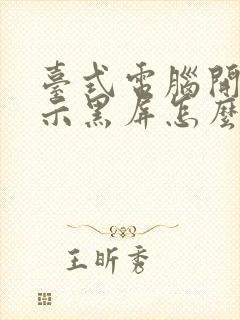 臺式電腦開
示黑屏怎麼
王昕秀